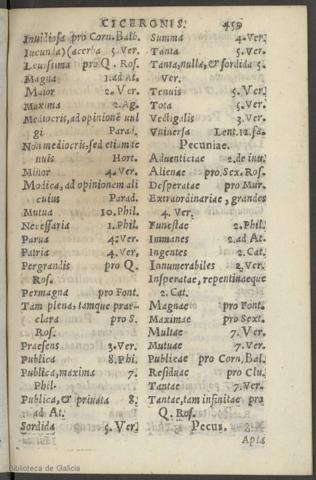 CICERONIS. 459
Inuidiosa pro Corn. Balb.
Iucunda) (acerba 5. Ver.
Leuissima pro Q. Ros.
Magna 1. ad At.
Maior 2. Ver.
Maxima 2. Ag.
Mediocris, ad opinionē uul
gi Parad.
Non mediocris, sed etiam te
nuis Hort.
Minor 4. Ver.
Modica, ad opinionem ali
cuius Parad.
Mutua 10. Phil.
Necessaria 1. Phil.
Parua 4. Ver.
Patria 4. Ver.
Pergrandis pro Q.
Ros.
Permagna pro Font.
Tam plena, tamque præ-
clara pro S.
Ros.
Praesens 3. Ver.
Publica 8. Phi.
Publica, maxima 7.
Phil.
Publica, & priuata 8.
ad At.
Sordida 5. Ver.
Summa 4. Ver.
Tanta 5. Ver.
Tanta, nulla, & sordida 5.
Ver.
Tenuis 5. Ver.
Tota 5. Ver.
Vectigalis 3. Ver.
Vniuersa Lent. 12. fa.
Pecuniae.
Aduenticiae 2. de inu.
Alienae pro. Sex. Ros.
Desperatae pro Mur.
Extraordinariae, grandes
4. Ver.
Funestae 2. Phil.
Immanes 2. ad At.
Ingentes 2. Cat.
Innumerabiles 2. Ver.
Insperatae, repentinaeque
2. Cat.
Magnae pro Font.
Maximae pro Sext.
Multae 7. Ver.
Mutuae 7. Ver.
Publicae pro Corn. Bal.
Residuae pro Clu.
Tantae 7. Ver.
Tantae, tam infinitae pro
Q. Ros.
Pecus.
Apta
Biblioteca de Galicia